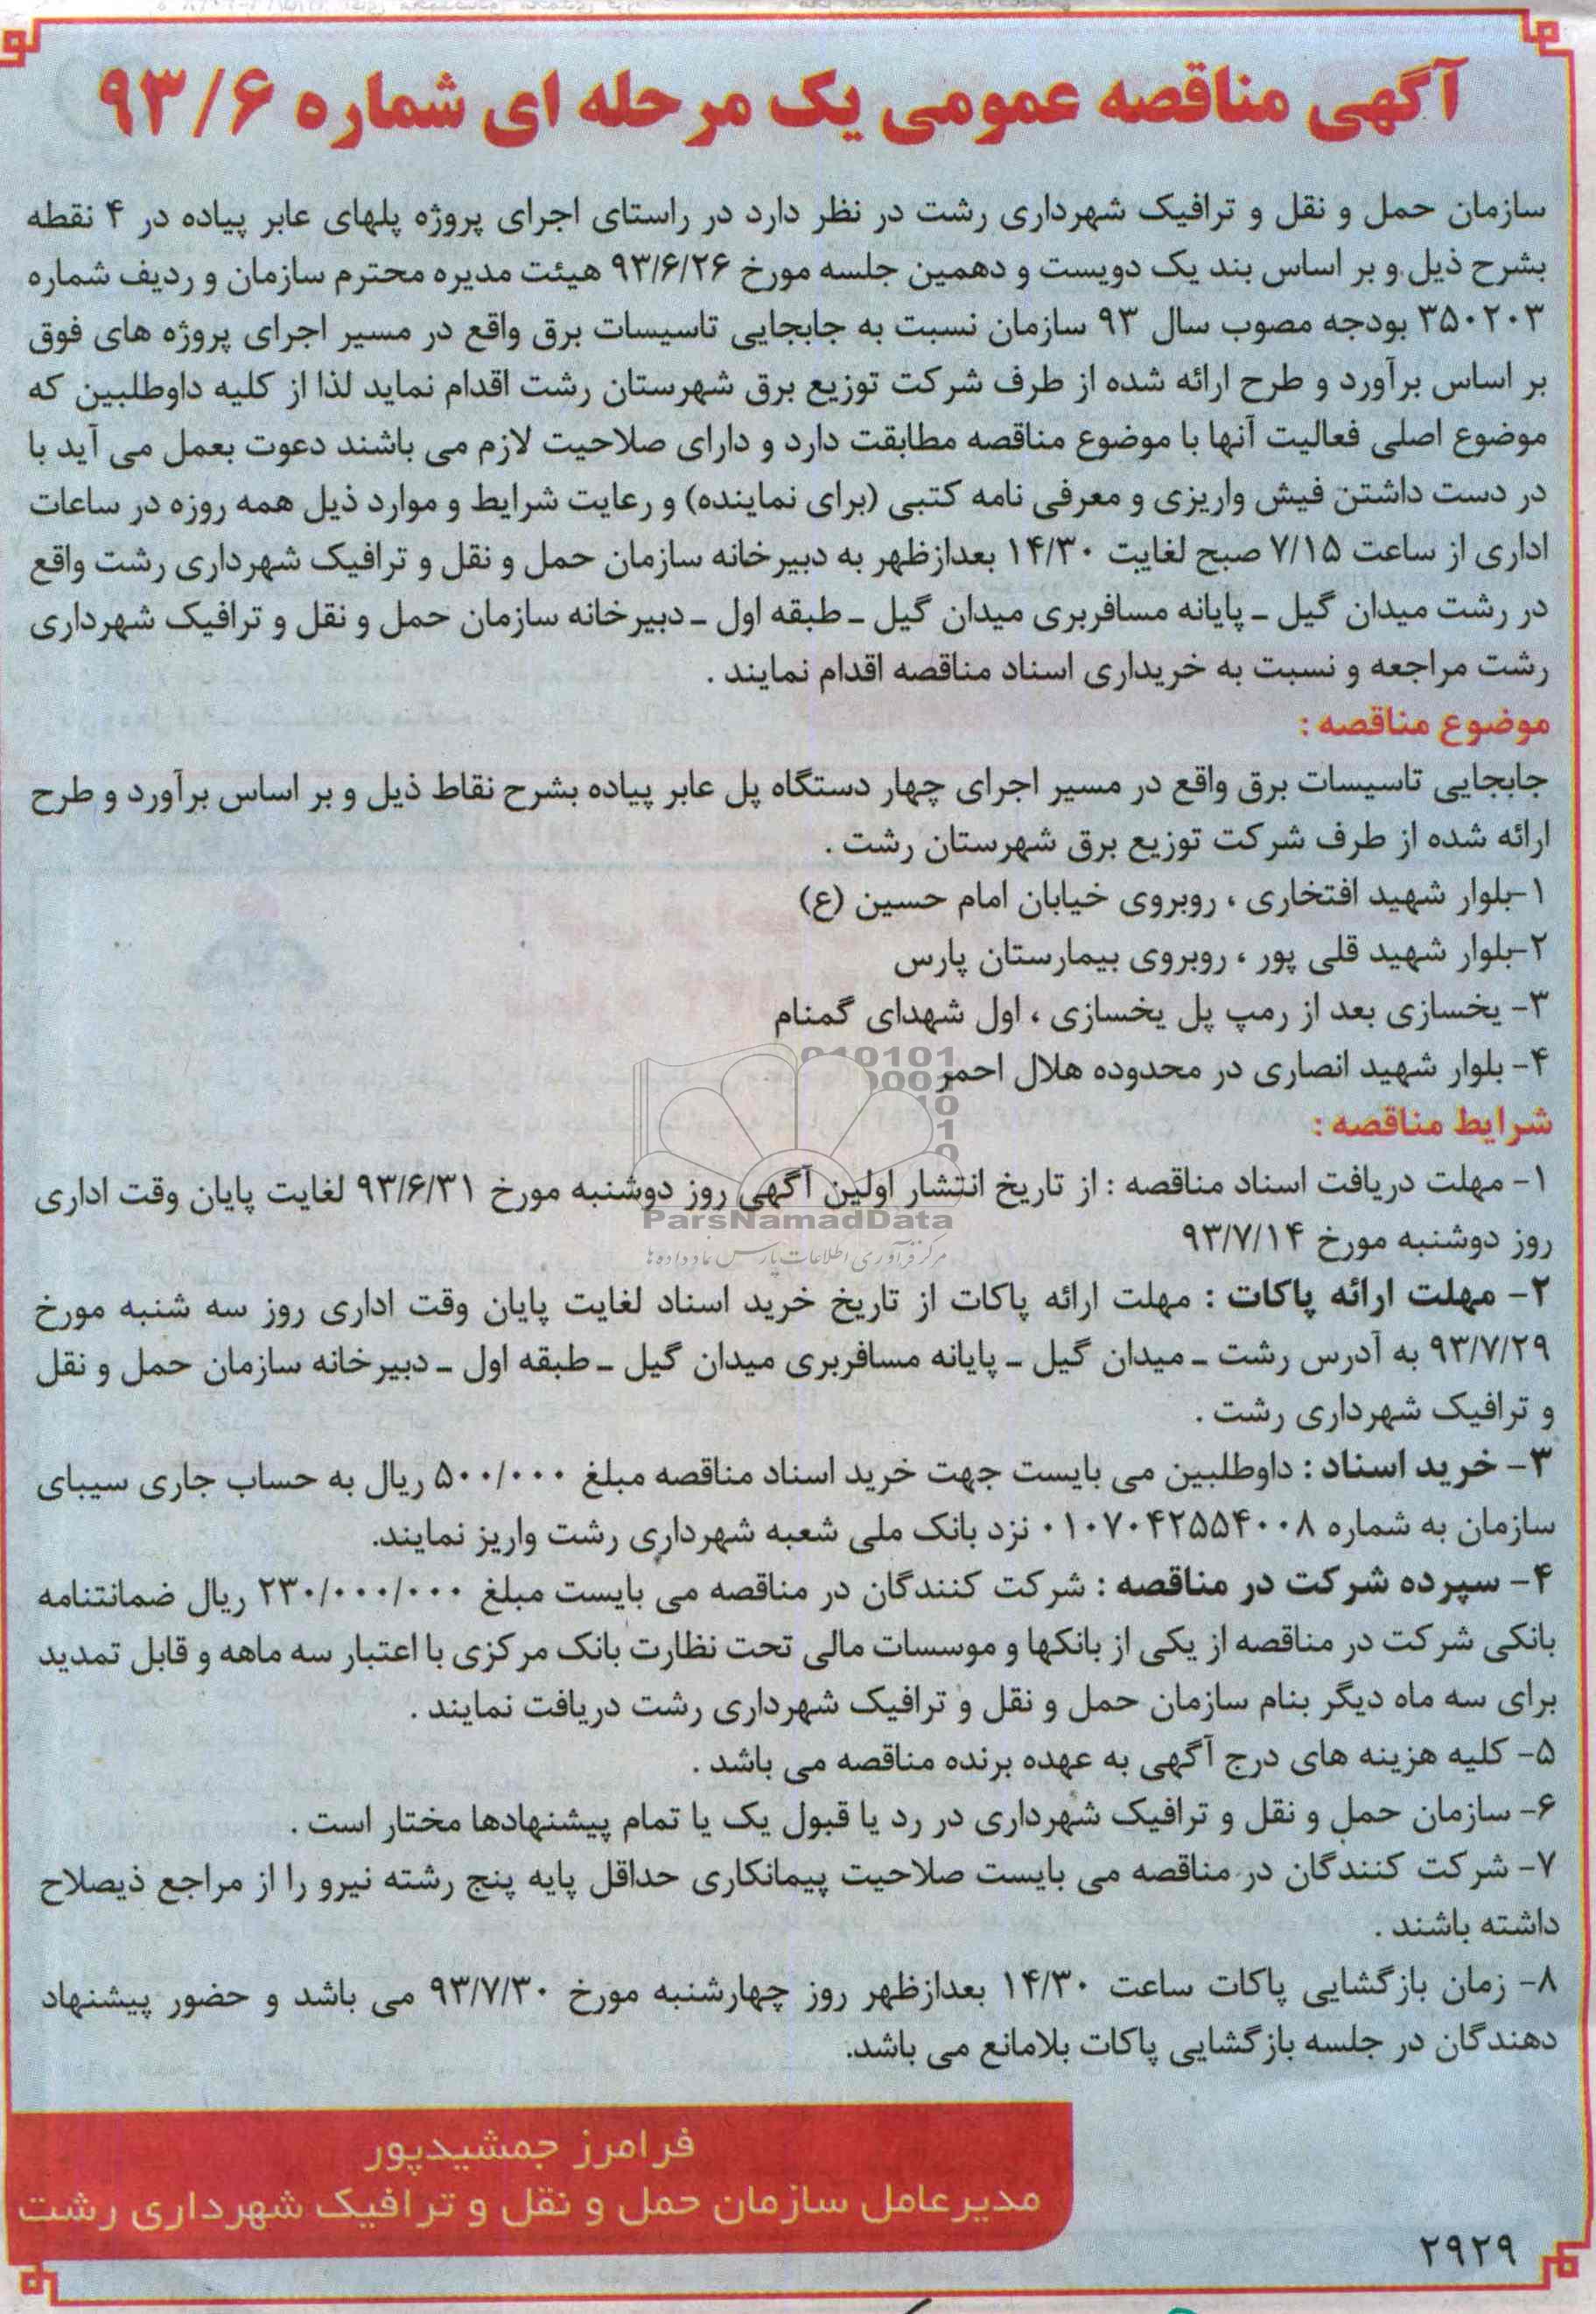 آگهی مناقصه عمومی یک مرحله ای شماره ۹۳/۶
سازمان حمل و نقل و ترافیک شهرداری رشت در نظر دارد در راستای اجرای پروژه پلهای عابر پیاده در ۴ نقطه
بشرح ذیل و بر اساس بند یک دویست و دهمین جلسه مورخ ۹۳/۶/۲۶ هیئت مدیره محترم سازمان و ردیف شماره
۳۵۰۲۰۳ بودجه مصوب سال ۹۳ سازمان نسبت به جابجایی تاسیسات برق واقع در مسیر اجرای پروژه های فوق
بر اساس برآورد و طرح ارائه شده از طرف شرکت توزیع برق شهرستان رشت اقدام نماید لذا از کلیه داوطلبین که
موضوع اصلی فعالیت آنها با موضوع مناقصه مطابقت دارد و دارای صلاحیت لازم می باشند دعوت بعمل می آید با
در دست داشتن فیش واریزی و معرفی نامه کتبی (برای نماینده) و رعایت شرایط و موارد ذیل همه روزه در ساعات
اداری از ساعت ۷/۱۵ صبح لغایت ۱۴/۳۰ بعدازظهر به دبیرخانه سازمان حمل و نقل و ترافیک شهرداری رشت واقع
در رشت میدان گیل ـ پایانه مسافربری میدان گیل ـ طبقه اول ـ دبیرخانه سازمان حمل و نقل و ترافیک شهرداری
رشت مراجعه و نسبت به خریداری اسناد مناقصه اقدام نمایند .
موضوع مناقصه :
جابجایی تاسیسات برق واقع در مسیر اجرای چهار دستگاه پل عابر پیاده بشرح نقاط ذیل و بر اساس برآورد و طرح
ارائه شده از طرف شرکت توزیع برق شهرستان رشت .
۱-بلوار شهید افتخاری ، روبروی خیابان امام حسین (ع)
۲-بلوار شهید قلی پور ، روبروی بیمارستان پارس
۳- یخسازی بعد از رمپ پل یخسازی ، اول شهدای گمنام
۴- بلوار شهید انصاری در محدوده هلال احمر
شرایط مناقصه :
۱- مهلت دریافت اسناد مناقصه : از تاریخ انتشار اولین آگهی روز دوشنبه مورخ ۹۳/۶/۳۱ لغایت پایان وقت اداری
روز دوشنبه مورخ ۹۳/۷/۱۴
ParsNamadData
مرکز فرآوری اطلاعات پارس نماد داده ها
۲- مهلت ارائه پاکات : مهلت ارائه پاکات از تاریخ خرید اسناد لغایت پایان وقت اداری روز سه شنبه مورخ
۹۳/۷/۲۹ به آدرس رشت ـ میدان گیل ـ پایانه مسافربری میدان گیل ـ طبقه اول ـ دبیرخانه سازمان حمل و نقل
و ترافیک شهرداری رشت .
۳- خرید اسناد : داوطلبین می بایست جهت خرید اسناد مناقصه مبلغ ۵۰۰/۰۰۰ ریال به حساب جاری سیبای
سازمان به شماره ۰۱۰۷۰۴۲۵۵۴۰۰۸ نزد بانک ملی شعبه شهرداری رشت واریز نمایند.
۴- سپرده شرکت در مناقصه : شرکت کنندگان در مناقصه می بایست مبلغ ۲۳۰/۰۰۰/۰۰۰ ریال ضمانتنامه
بانکی شرکت در مناقصه از یکی از بانکها و موسسات مالی تحت نظارت بانک مرکزی با اعتبار سه ماهه و قابل تمدید
برای سه ماه دیگر بنام سازمان حمل و نقل و ترافیک شهرداری رشت دریافت نمایند .
۵- کلیه هزینه های درج آگهی به عهده برنده مناقصه می باشد .
۶- سازمان حمل و نقل و ترافیک شهرداری در رد یا قبول یک یا تمام پیشنهادها مختار است .
۷- شرکت کنندگان در مناقصه می بایست صلاحیت پیمانکاری حداقل پایه پنج رشته نیرو را از مراجع ذیصلاح
داشته باشند .
۸- زمان بازگشایی پاکات ساعت ۱۴/۳۰ بعدازظهر روز چهارشنبه مورخ ۹۳/۷/۳۰ می باشد و حضور پیشنهاد
دهندگان در جلسه بازگشایی پاکات بلامانع می باشد.
فرامرز جمشیدپور
مدیرعامل سازمان حمل و نقل و ترافیک شهرداری رشت
۲۹۲۹